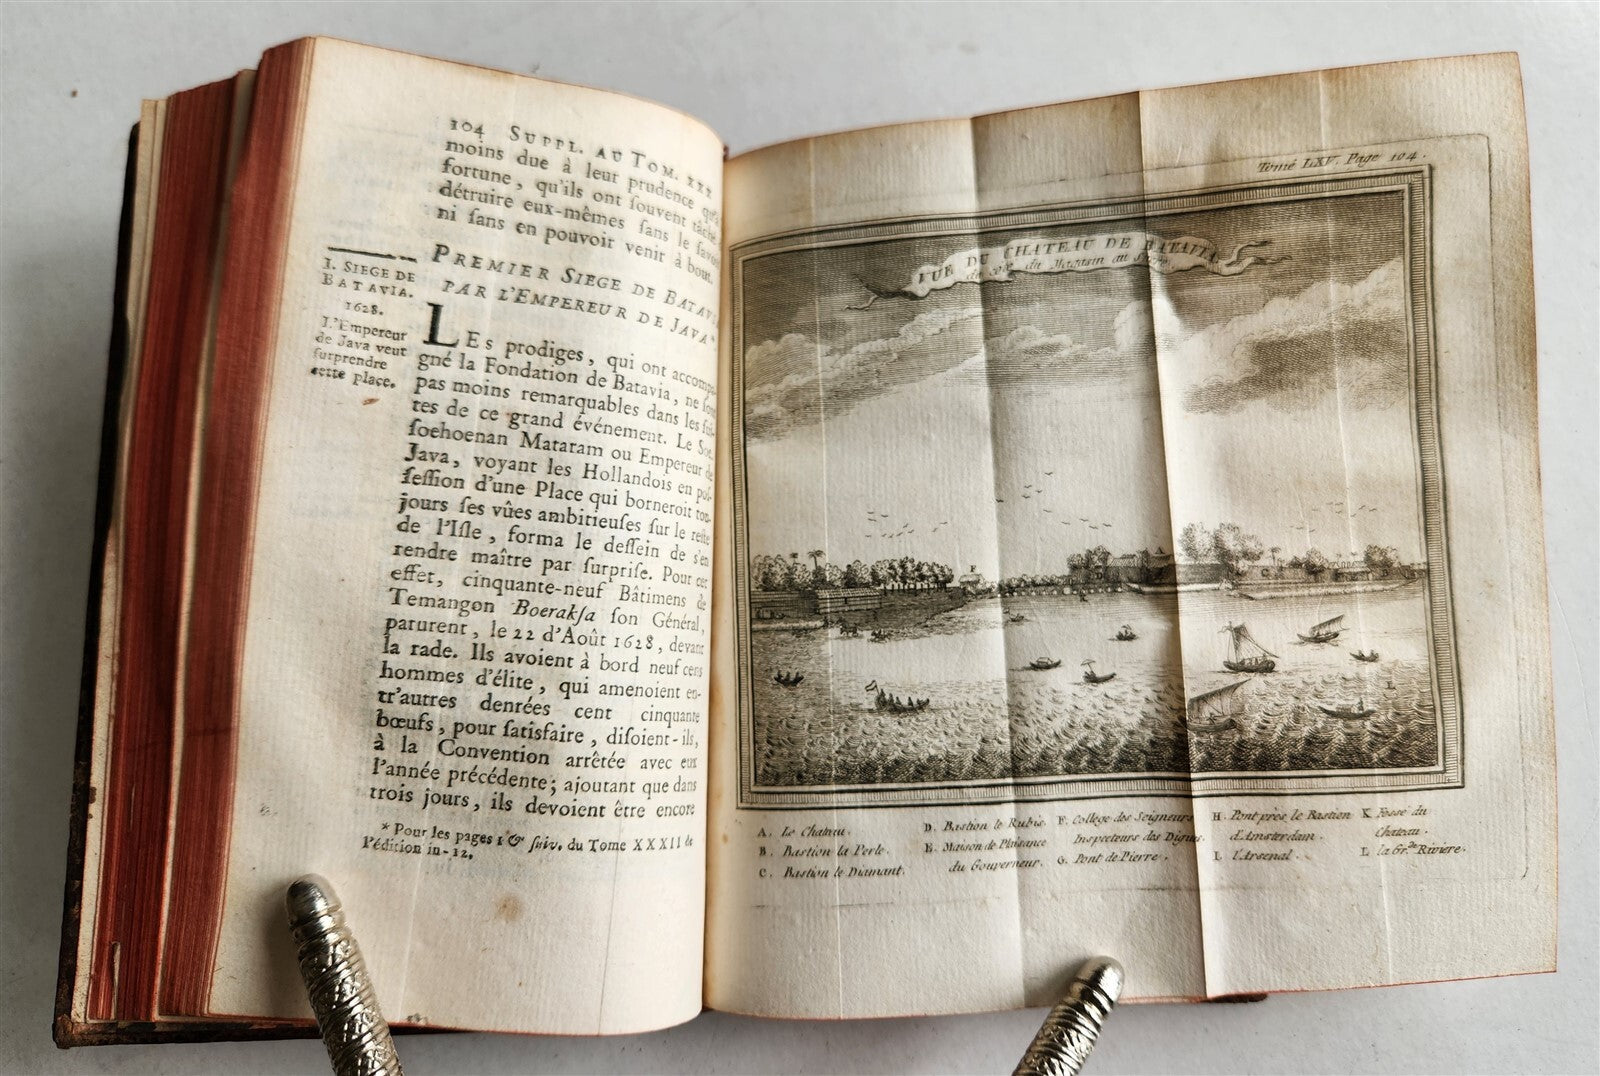 104 SUPPL. AU TOM. XXX
moins due à leur prudence qu'à
fortune, qu'ils ont souvent tâché
détruire eux-mêmes sans le savoir
ni sans en pouvoir venir à bout.
PREMIER SIEGE DE BATAVI
PAR L'EMPEREUR DE JAVA*
I. SIEGE DE
BATAVIA.
1628.
L'Empereur
de Java veut
surprendre
cette place.
LEs prodiges, qui ont accompa-
gné la Fondation de Batavia, ne sont
pas moins remarquables dans les sui-
tes de ce grand événement. Le Soe-
soehoenan Mataram ou Empereur de
Java, voyant les Hollandois en pos-
session d'une Place qui borneroit tou-
jours ses vûes ambitieuses sur le reste
de l'Isle, forma le dessein de s'en
rendre maître par surprise. Pour cet
effet, cinquante-neuf Bâtimens de
Temangon Boeraksa son Général,
parurent, le 22 d'Août 1628, devant
la rade. Ils avoient à bord neuf cens
hommes d'élite, qui amenoient en-
tr'autres denrées cent cinquante
bœufs, pour satisfaire, disoient-ils,
à la Convention arrêtée avec eux
l'année précédente; ajoutant que dans
trois jours, ils devoient être encore
* Pour les pages 1 & suiv. du Tome XXXII de
l'édition in-12.
Tome LXV. Page 104.
VUE DU CHATEAU DE BATAVIA
du côté du Magasin au
A. Le Chateau.
B. Bastion la Perle.
C. Bastion le Diamant.
D. Bastion le Rubis.
E. Maison de Plaisance
du Gouverneur.
F. College des Seigneurs
Inspecteurs des Digues.
G. Pont de Pierre.
H. Pont près le Bastion
d'Amsterdam.
I. l'Arsenal.
K. Fossé du
Chateau.
L. la Gr.de Riviere.